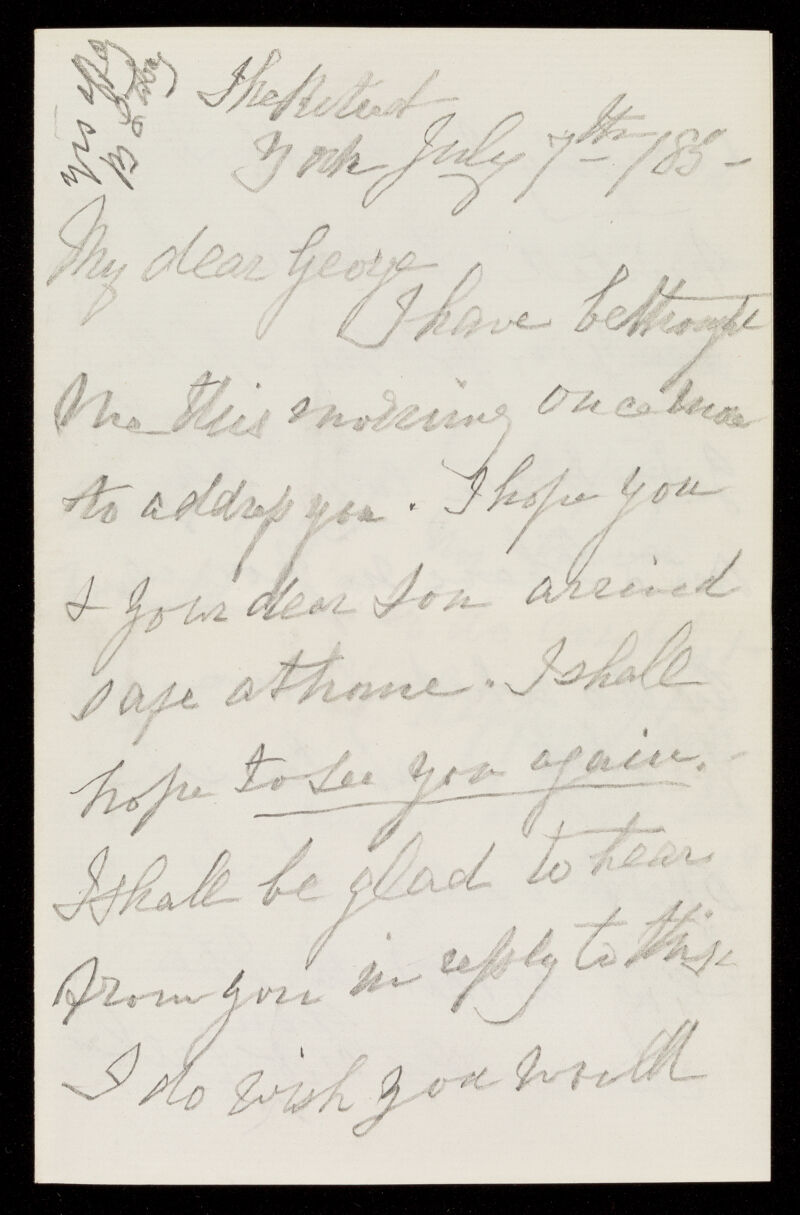 The Retreat
York July 7th 188 -
My dear George
I have bethought
me this morning once more
to address you. I hope you
& your dear Son arrived
safe at home. I shall
hope to see you again. -
I shall be glad to hear
from you in reply to this.
I do wish you would
yrs